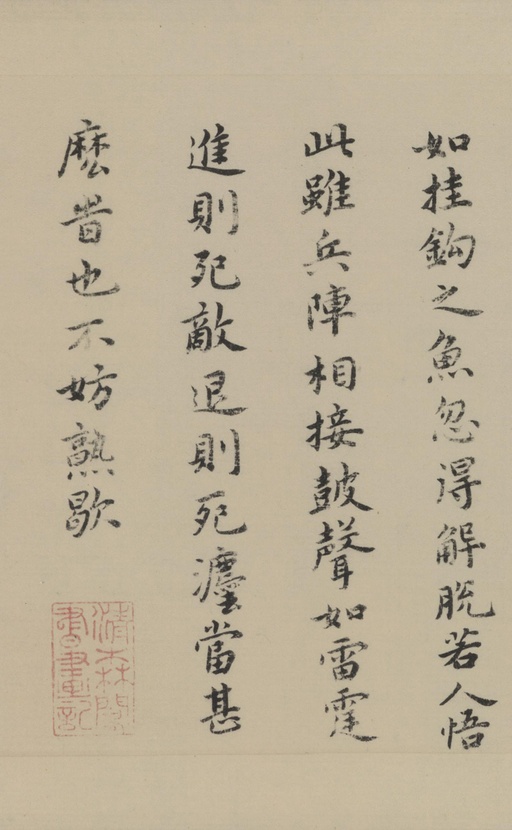 如挂鉤之魚忽得解脫若人悟
此雖兵陣相接鼓聲如雷霆
進則死敵退則死灋當甚
麼旹也不妨熟歇
清森閣
書畫記